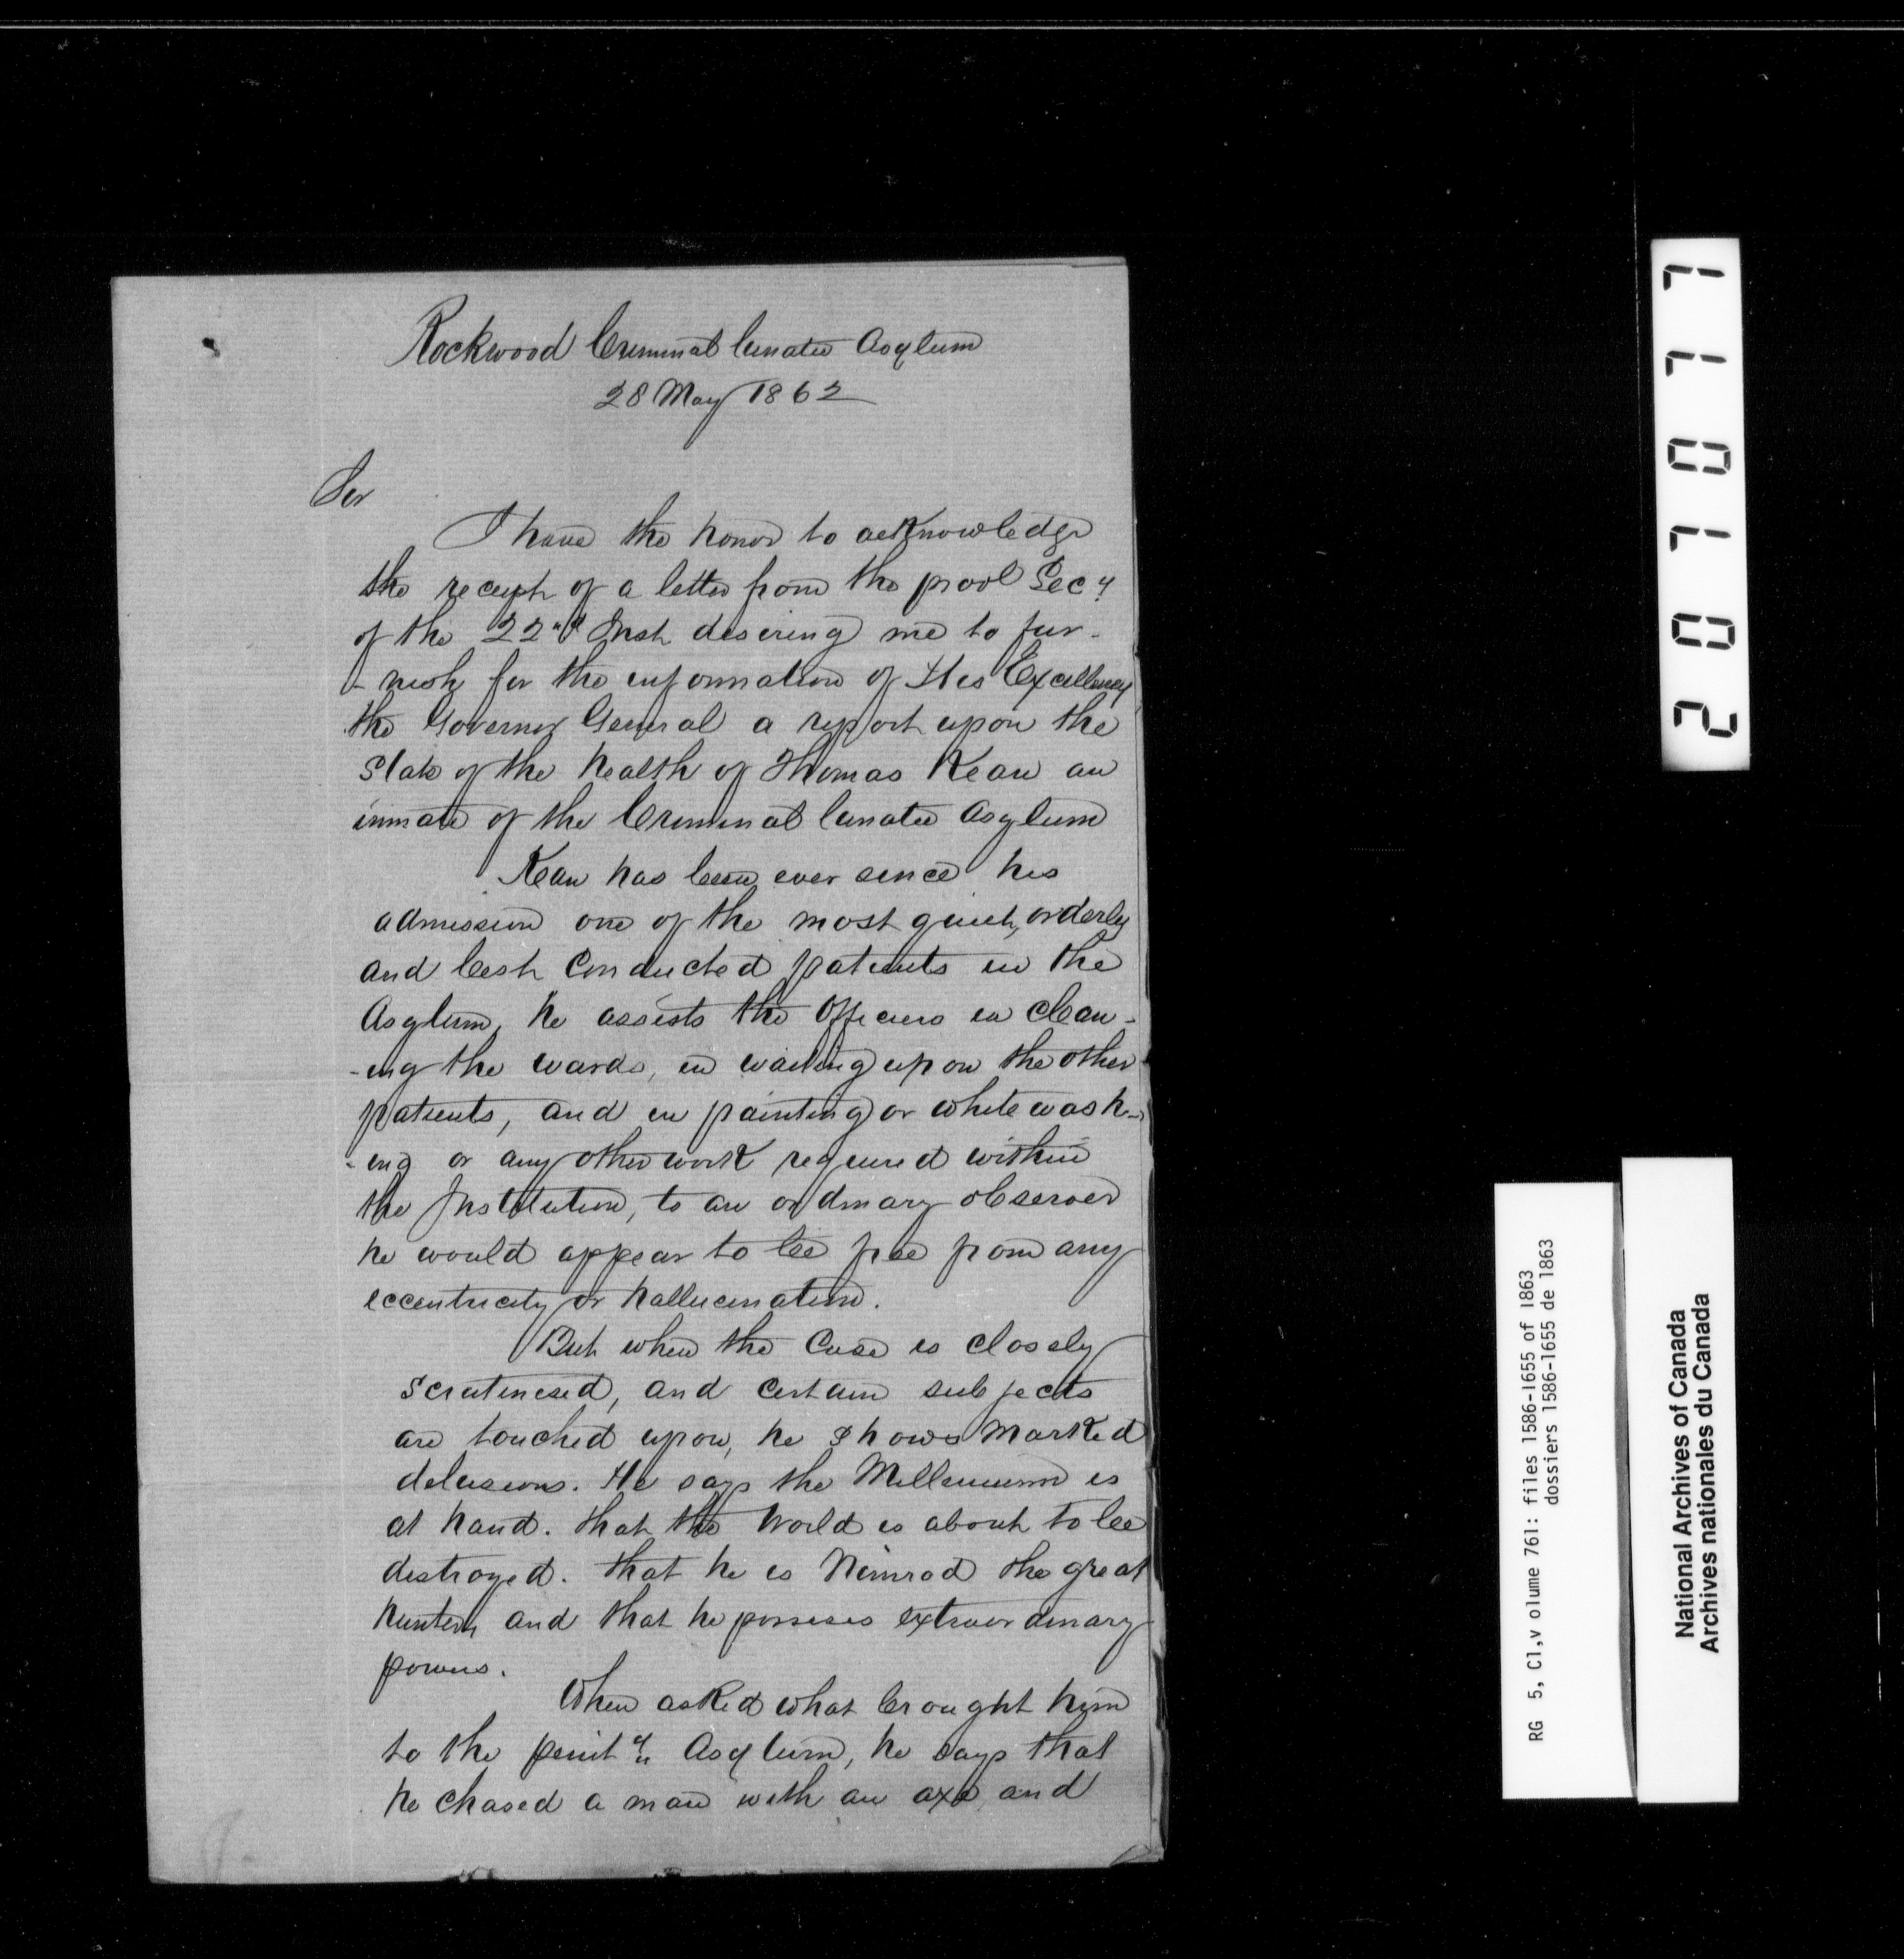 Rockwood Criminal Lunatic Asylum
28 May 1862
Sir
I have the honor to acknowledge
the receipt of a letter from the provl Secy
of the 22nd Inst desiring me to fur-
-nish for the information of His Excellency
the Governor General a report upon the
State of the health of Thomas Kean an
inmate of the Criminal Lunatic Asylum
Kean has been ever since his
admission one of the most quiet, orderly
and best conducted patients in the
Asylum, he assists the Officers in clean-
-ing the wards, in waiting upon the other
patients, and in painting or whitewash-
-ing or any other work required within
the Institution, to an ordinary observer
he would appear to be free from any
eccentricity or hallucination.
But when the Case is closely
scrutinised, and certain subjects
are touched upon, he shows marked
delusions. He says the Millenium is
at hand. that the World is about to be
destroyed. that he is Nimrod the great
hunter, and that he posseses extraordinary
powers.
When asked what brought him
to the penity Asylum, he says that
he chased a man with an axe, and
207077
RG 5, C1,v olume 761: files 1586-1655 of 1863
dossiers 1586-1655 de 1863
National Archives of Canada
Archives nationales du Canada